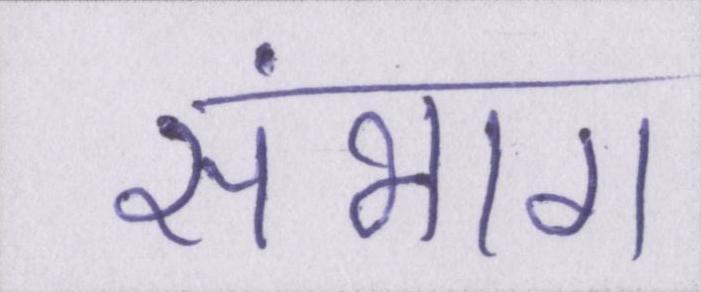 संभाग